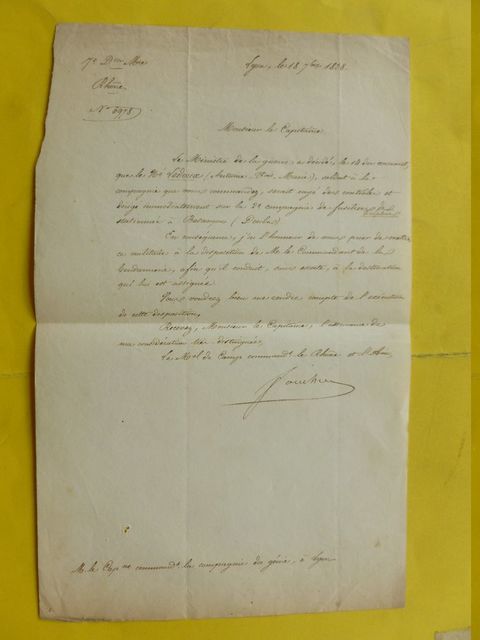 7e Don Mre
Lyon, le 18 7bre 1838.
Rhône
No 6978
Monsieur le Capitaine
Le Ministre de la guerre a décidé, le 14 du courant,
que le Né Ledoux (Antoine Marie), soldat à la
compagnie que vous commandez, serait rayé des contrôles et
dirigé immédiatement sur la 2e compagnie de fusiliers
stationnée à Besançon (Doubs)
En conséquence, j'ai l'honneur de vous prier de mettre
ce militaire à la disposition de Mr le Commandant de la
Gendarmerie, afin qu'il soit conduit, sous escorte, à la destination
qui lui est assignée.
Vous voudrez bien me rendre compte de l'exécution
de cette disposition.
Recevez, Monsieur le Capitaine, l'assurance de
ma considération très-distinguée,
Le Mal de Camp commandt le Rhône et l'Ain
M. le Capne commandt la compagnie du génie, à Lyon